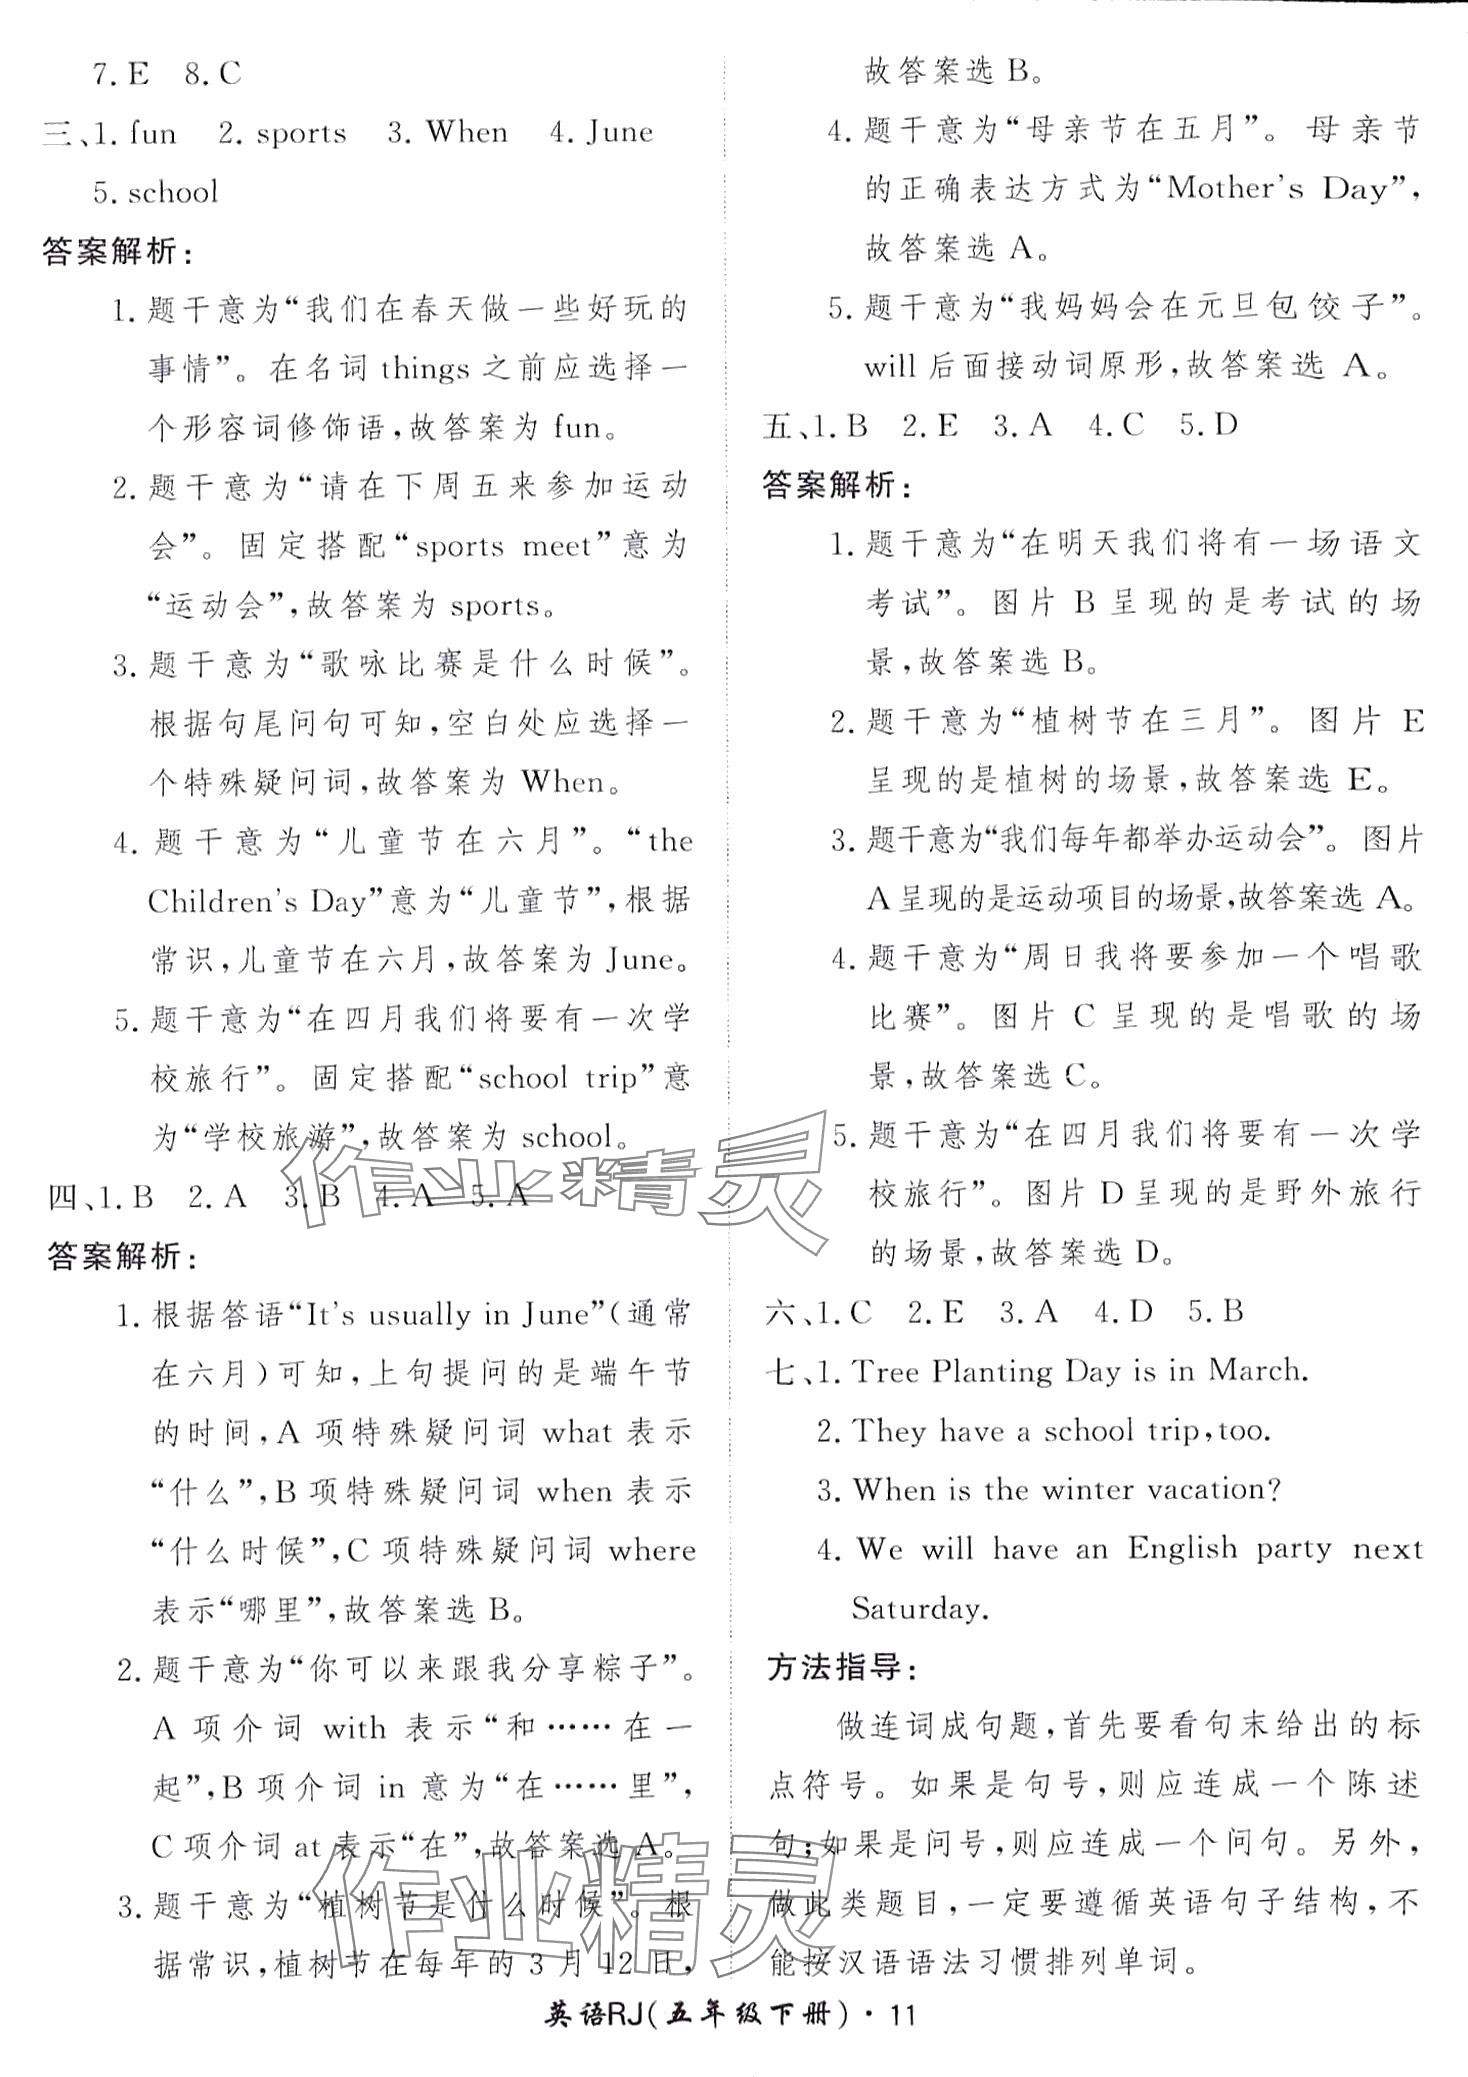 7. E 8. C
三、1. fun 2. sports 3. When 4. June
5. school
答案解析：
1. 题干意为“我们在春天做一些好玩的
事情”。在名词 things 之前应选择一
个形容词修饰语，故答案为 fun。
2. 题干意为“请在下周五来参加运动
会”。固定搭配“sports meet”意为
“运动会”，故答案为 sports。
3. 题干意为“歌咏比赛是什么时候”。
根据句尾问句可知，空白处应选择一
个特殊疑问词，故答案为 When。
4. 题干意为“儿童节在六月”。“the
Children's Day”意为“儿童节”，根据
常识，儿童节在六月，故答案为 June。
5. 题干意为“在四月我们将要有一次学
校旅行”。固定搭配“school trip”意
为“学校旅游”，故答案为 school。
四、1. B 2. A 3. B 4. A 5. A
答案解析：
1. 根据答语“It's usually in June”（通常
在六月）可知，上句提问的是端午节
的时间，A 项特殊疑问词 what 表示
“什么”，B 项特殊疑问词 when 表示
“什么时候”，C 项特殊疑问词 where
表示“哪里”，故答案选 B。
2. 题干意为“你可以来跟我分享粽子”。
A 项介词 with 表示“和……在一
起”，B 项介词 in 意为“在……里”，
C 项介词 at 表示“在”，故答案选 A。
3. 题干意为“植树节是什么时候”。根
据常识，植树节在每年的 3 月 12 日，
故答案选 B。
4. 题干意为“母亲节在五月”。母亲节
的正确表达方式为“Mother's Day”，
故答案选 A。
5. 题干意为“我妈妈会在元旦包饺子”。
will 后面接动词原形，故答案选 A。
五、1. B 2. E 3. A 4. C 5. D
答案解析：
1. 题干意为“在明天我们将有一场语文
考试”。图片 B 呈现的是考试的场
景，故答案选 B。
2. 题干意为“植树节在三月”。图片 E
呈现的是植树的场景，故答案选 E。
3. 题干意为“我们每年都举办运动会”。图片
A 呈现的是运动项目的场景，故答案选 A。
4. 题干意为“周日我将要参加一个唱歌
比赛”。图片 C 呈现的是唱歌的场
景，故答案选 C。
5. 题干意为“在四月我们将要有一次学
校旅行”。图片 D 呈现的是野外旅行
的场景，故答案选 D。
六、1. C 2. E 3. A 4. D 5. B
七、1. Tree Planting Day is in March.
2. They have a school trip, too.
3. When is the winter vacation?
4. We will have an English party next
Saturday.
方法指导：
做连词成句题，首先要看句末给出的标
点符号。如果是句号，则应连成一个陈述
句；如果是问号，则应连成一个问句。另外，
做此类题目，一定要遵循英语句子结构，不
能按汉语语法习惯排列单词。
英语RJ(五年级下册)·11
作业精灵
作业精灵